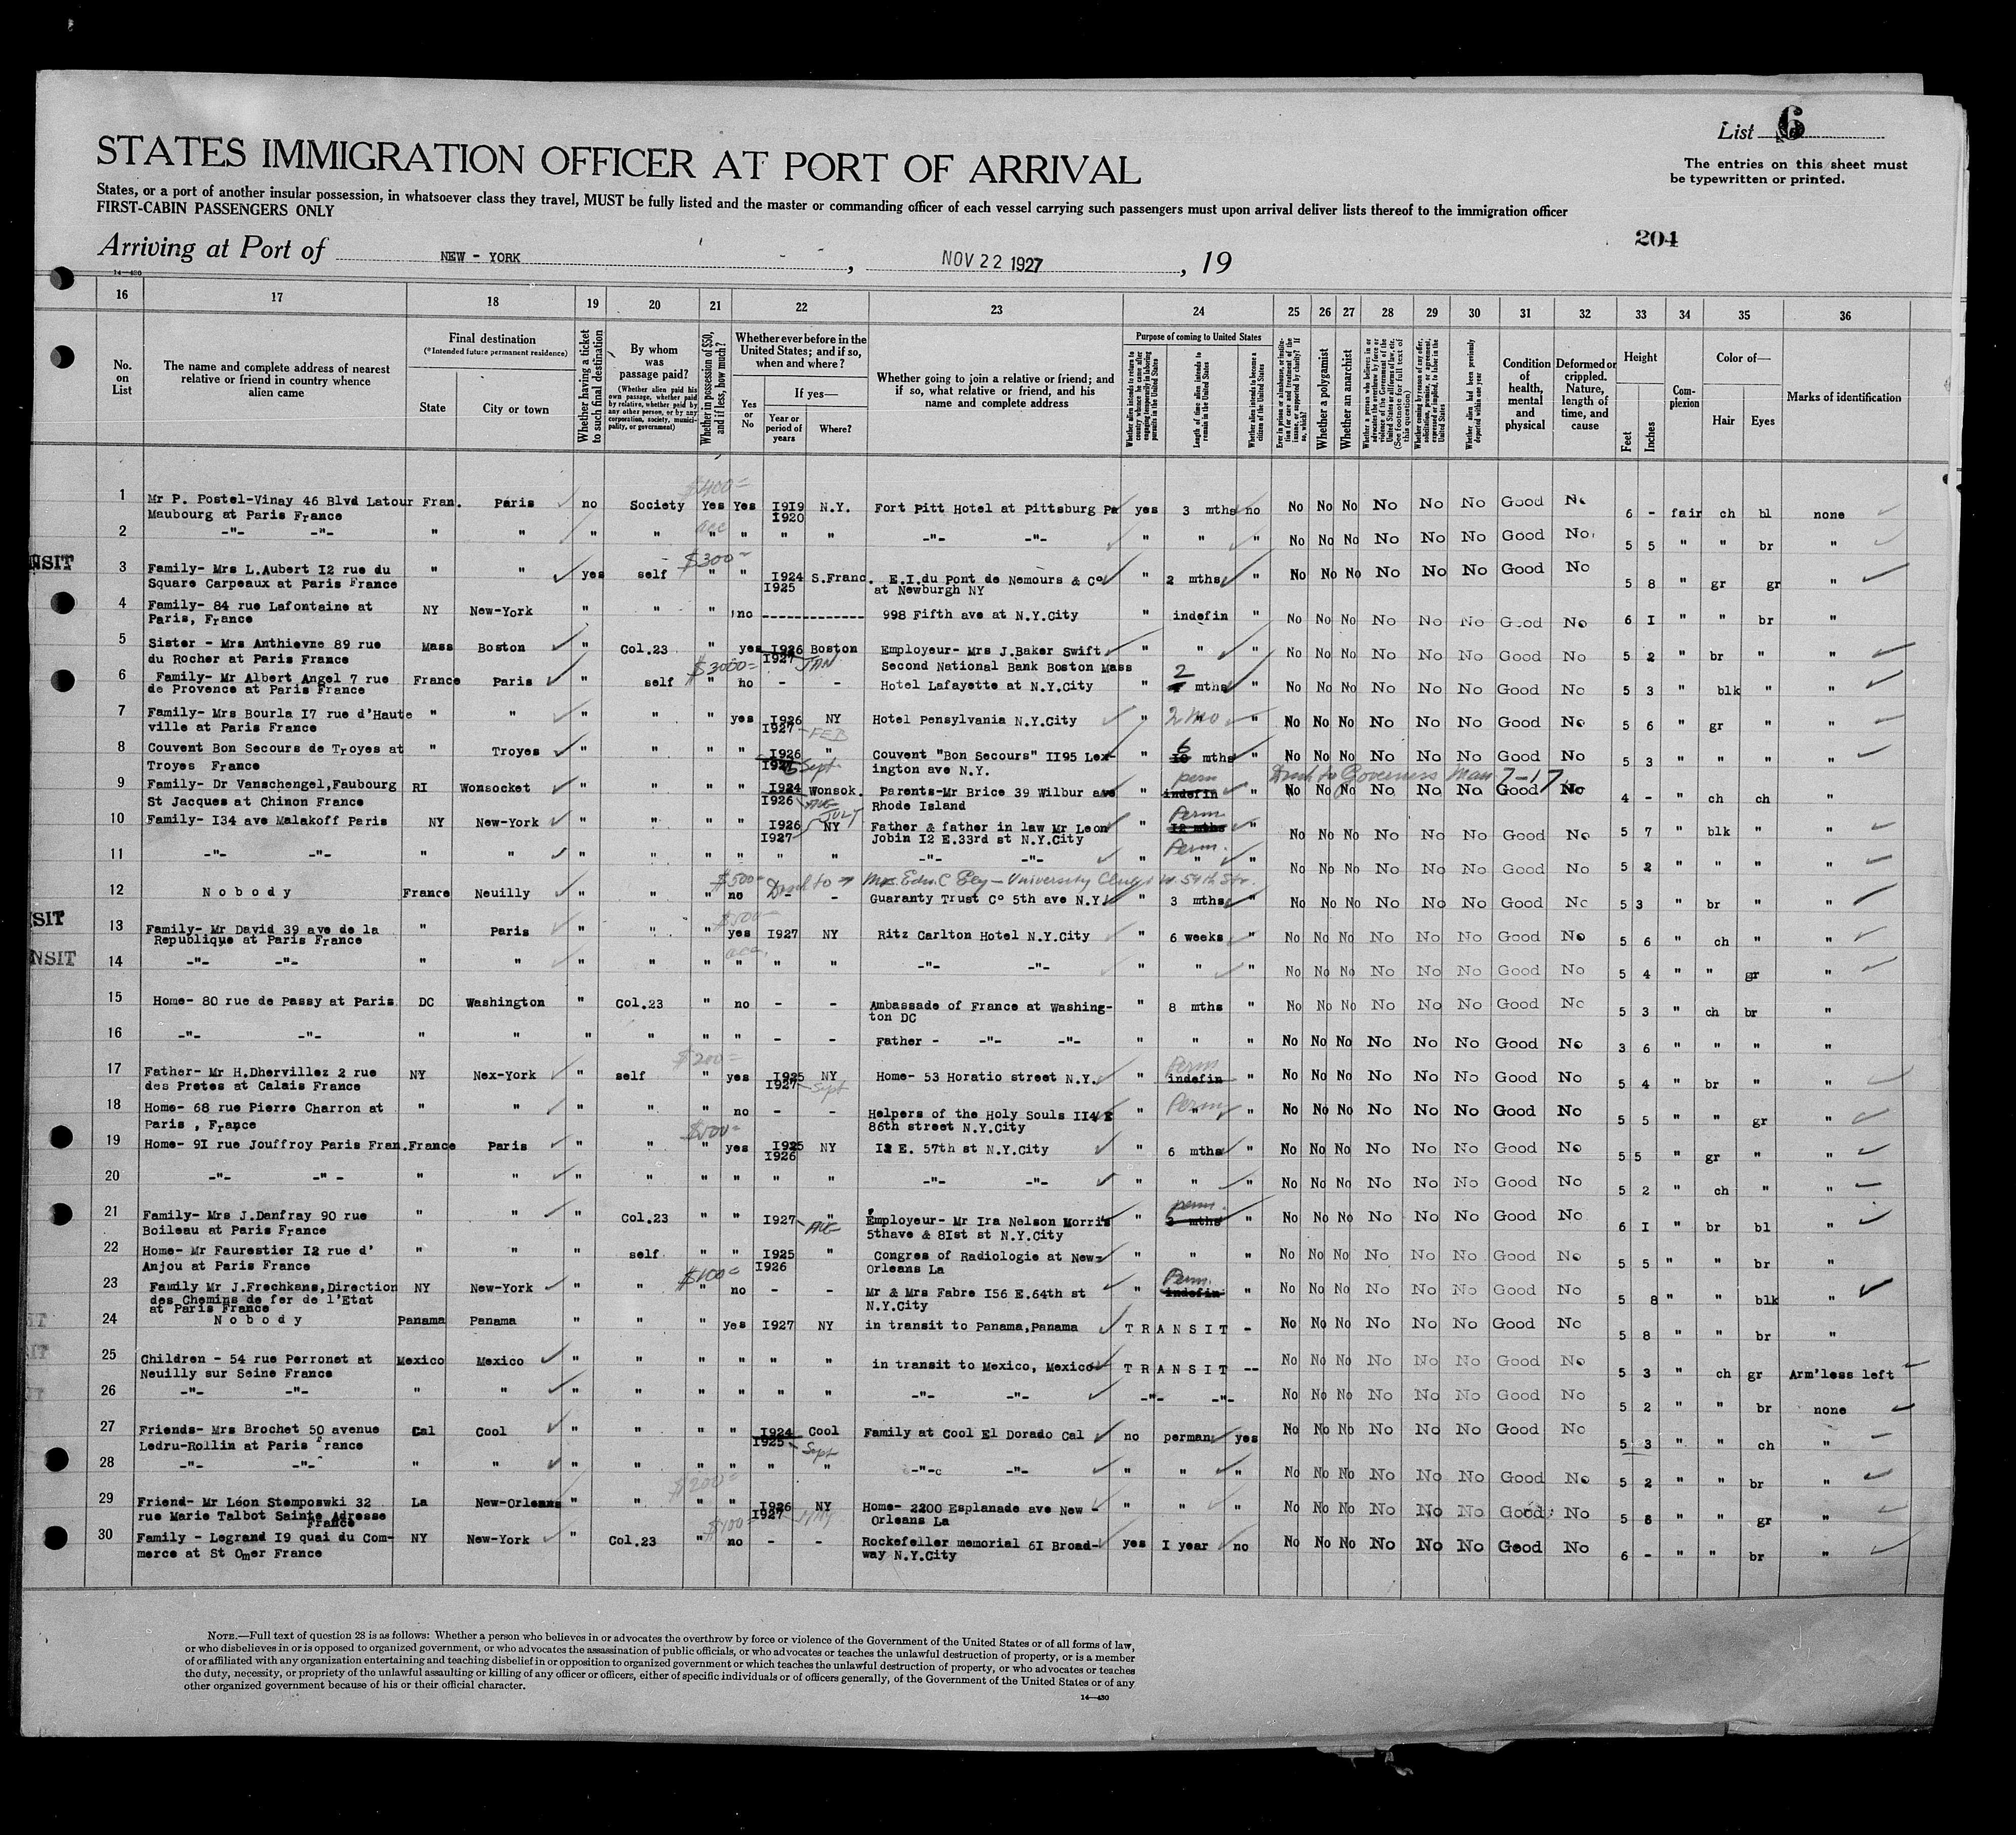 List 6
STATES IMMIGRATION OFFICER AT PORT OF ARRIVAL
The entries on this sheet must
be typewritten or printed.
States, or a port of another insular possession, in whatsoever class they travel, MUST be fully listed and the master or commanding officer of each vessel carrying such passengers must upon arrival deliver lists thereof to the immigration officer
FIRST-CABIN PASSENGERS ONLY
204
Arriving at Port of NEW - YORK, NOV 22 1927, 19
14—430
16 17 18 19 20 21 22 23 24 25 26 27 28 29 30 31 32 33 34 35 36
No. on List
The name and complete address of nearest relative or friend in country whence alien came
Final destination
(*Intended future permanent residence)
State
City or town
Whether having a ticket to such final destination
By whom was passage paid?
(Whether alien paid his own passage, whether paid by relative, whether paid by any other person, or by any corporation, society, municipality, or government)
Whether in possession of $50, and if less, how much?
Whether ever before in the United States; and if so, when and where?
Yes or No
If yes—
Year or period of years
Where?
Whether going to join a relative or friend; and if so, what relative or friend, and his name and complete address
Purpose of coming to United States
Whether alien intends to return to country whence he came after engaging temporarily in laboring pursuits in the United States
Length of time alien intends to remain in the United States
Whether alien intends to become a citizen of the United States
Ever in prison or almshouse, or institution for care and treatment of the insane, or supported by charity? If so, which?
Whether a polygamist
Whether an anarchist
Whether a person who believes in or advocates the overthrow by force or violence of the Government of the United States or all forms of law, etc. (See footnote for full text of this question)
Whether coming by reason of any offer, solicitation, promise, or agreement, expressed or implied, to labor in the United States
Whether alien had been previously deported within one year
Condition of health, mental and physical
Deformed or crippled. Nature, length of time, and cause
Height
Feet
Inches
Complexion
Color of—
Hair
Eyes
Marks of identification
$400=
1 Mr P. Postel-Vinay 46 Blvd Latour Maubourg at Paris France Fran. Paris no Society Yes Yes I9I9 I920 N.Y. Fort Pitt Hotel at Pittsburg Pa yes 3 mths no No No No No No No Good No 6 - fair ch bl none
2 -"- -"- " " " " " " " " -"- -"- " " " No No No No No No Good No 5 5 " " br "
NSIT
$300=
3 Family- Mrs L.Aubert I2 rue du Square Carpeaux at Paris France " " yes self " " I924 I925 S.Franc. E.I.du Pont de Nemours & C° at Newburgh NY " 2 mths " No No No No No No Good No 5 8 " gr gr "
4 Family- 84 rue Lafontaine at Paris, France NY New-York " " " no -------------- 998 Fifth ave at N.Y.City " indefin " No No No No No No Good No 6 I " " br "
5 Sister - Mrs Anthievre 89 rue du Rocher at Paris France Mass Boston " Col.23 " yes I926 I927 JAN Boston Employeur- Mrs J.Baker Swift Second National Bank Boston Mass " " " No No No No No No Good No 5 2 " br " "
$3000=
6 Family- Mr Albert Angel 7 rue de Provence at Paris France France Paris " self " no - - Hotel Lafayette at N.Y.City " 2 mths " No No No No No No Good No 5 3 " blk " "
7 Family- Mrs Bourla I7 rue d'Haute ville at Paris France " " " " " yes I926 I927 FEB NY Hotel Pensylvania N.Y.City " 2 mo " No No No No No No Good No 5 6 " gr " "
8 Couvent Bon Secours de Troyes at Troyes France " Troyes " " " " I926 I927 Sept. " Couvent "Bon Secours" II95 Lexington ave N.Y. " 6 mths " No No No No No No Good No 5 3 " " " "
9 Family- Dr Vanschengel,Faubourg St Jacques at Chinon France RI Wonsocket " " " " I924 I926 AUG Wonsok. Parents-Mr Brice 39 Wilbur ave Rhode Island " indefin perm " No No No No No No Good No 4 - " ch ch "
10 Family- I34 ave Malakoff Paris NY New-York " " " " I926 I927 JULY NY Father & father in law Mr Leon Jobin I2 E.33rd st N.Y.City " I2 mths Perm " No No No No No No Good No 5 7 " blk " "
11 -"- -"- " " " " " " " " -"- -"- " " Perm. " No No No No No No Good No 5 2 " " " "
$500=
12 N o b o d y France Neuilly " " " no - - Guaranty Trust C° 5th ave N.Y. " 3 mths " No No No No No No Good No 5 3 " br " "
SIT
$500=
13 Family- Mr David 39 ave de la Republique at Paris France " Paris " " " yes I927 NY Ritz Carlton Hotel N.Y.City " 6 weeks " No No No No No No Good No 5 6 " ch " "
NSIT
14 -"- -"- " " " " " " " " -"- -"- " " " No No No No No No Good No 5 4 " " gr "
15 Home- 80 rue de Passy at Paris DC Washington " Col.23 " no - - Ambassade of France at Washington DC " 8 mths " No No No No No No Good No 5 3 " ch br "
16 -"- -"- " " " " " " - - Father - -"- -"- " " " No No No No No No Good No 3 6 " " " "
$200=
17 Father- Mr H.Dhervillez 2 rue des Pretes at Calais France NY Nex-York " self " yes I925 I927 Sept NY Home- 53 Horatio street N.Y. " indefin Perm " No No No No No No Good No 5 4 " br " "
18 Home- 68 rue Pierre Charron at Paris , France " " " " " no - - Helpers of the Holy Souls II4/E 86th street N.Y.City " " Perm " No No No No No No Good No 5 5 " " gr "
$500=
19 Home- 9I rue Jouffroy Paris Fran. France Paris " " " yes I925 I926 NY I2 E. 57th st N.Y.City " 6 mths " No No No No No No Good No 5 5 " gr " "
20 -"- -"- " " " " " " " " -"- -"- " " " No No No No No No Good No 5 2 " ch " "
21 Family- Mrs J.Danfray 90 rue Boileau at Paris France " " " Col.23 " " I927 AUG " Employeur- Mr Ira Nelson Morris 5thave & 8Ist st N.Y.City " mths perm. " No No No No No No Good No 6 I " br bl "
22 Home- Mr Faurestier I2 rue d' Anjou at Paris France " " " self " " I925 I926 " Congres of Radiologie at New-Orleans La " " " No No No No No No Good No 5 5 " " br "
$100=
23 Family Mr J.Frechkans,Direction des Chemins de fer de l'Etat at Paris France NY New-York " " " no - - Mr & Mrs Fabre I56 E.64th st N.Y.City " indefin Perm. " No No No No No No Good No 5 8 " " blk "
24 N o b o d y Panama Panama " " " yes I927 NY in transit to Panama,Panama T R A N S I T - No No No No No No Good No 5 8 " " br "
25 Children - 54 rue Perronet at Neuilly sur Seine France Mexico Mexico " " " " " " in transit to Mexico, Mexico T R A N S I T -- No No No No No No Good No 5 3 " ch gr Arm'less left
26 -"- -"- " " " " " " " " -"- -"- -"- -"- No No No No No No Good No 5 2 " " br none
27 Friends- Mrs Brochet 50 avenue Ledru-Rollin at Paris France Cal Cool " " " " I924 I925 Sept Cool Family at Cool El Dorado Cal no perman. yes No No No No No No Good No 5 3 " " ch "
28 -"- -"- " " " " " " " " -"- -"- " " " No No No No No No Good No 5 2 " " br "
$200=
29 Friend- Mr Léon Stemposwki 32 rue Marie Talbot Sainte Adresse France La New-Orleans " " " " I926 I927 NY Home- 2200 Esplanade ave New - Orleans La " " " No No No No No No Good No 5 8 " " gr "
$100=
30 Family - Legrand I9 quai du Commerce at St Omer France NY New-York " Col.23 " no - - Rockefeller memorial 6I Broadway N.Y.City yes I year no No No No No No No Good No 6 - " " br "
NOTE.—Full text of question 28 is as follows: Whether a person who believes in or advocates the overthrow by force or violence of the Government of the United States or of all forms of law,
or who disbelieves in or is opposed to organized government, or who advocates the assassination of public officials, or who advocates or teaches the unlawful destruction of property, or is a member
of or affiliated with any organization entertaining and teaching disbelief in or opposition to organized government or which teaches the unlawful destruction of property, or who advocates or teaches
the duty, necessity, or propriety of the unlawful assaulting or killing of any officer or officers, either of specific individuals or of officers generally, of the Government of the United States or of any
other organized government because of his or their official character.
14—430